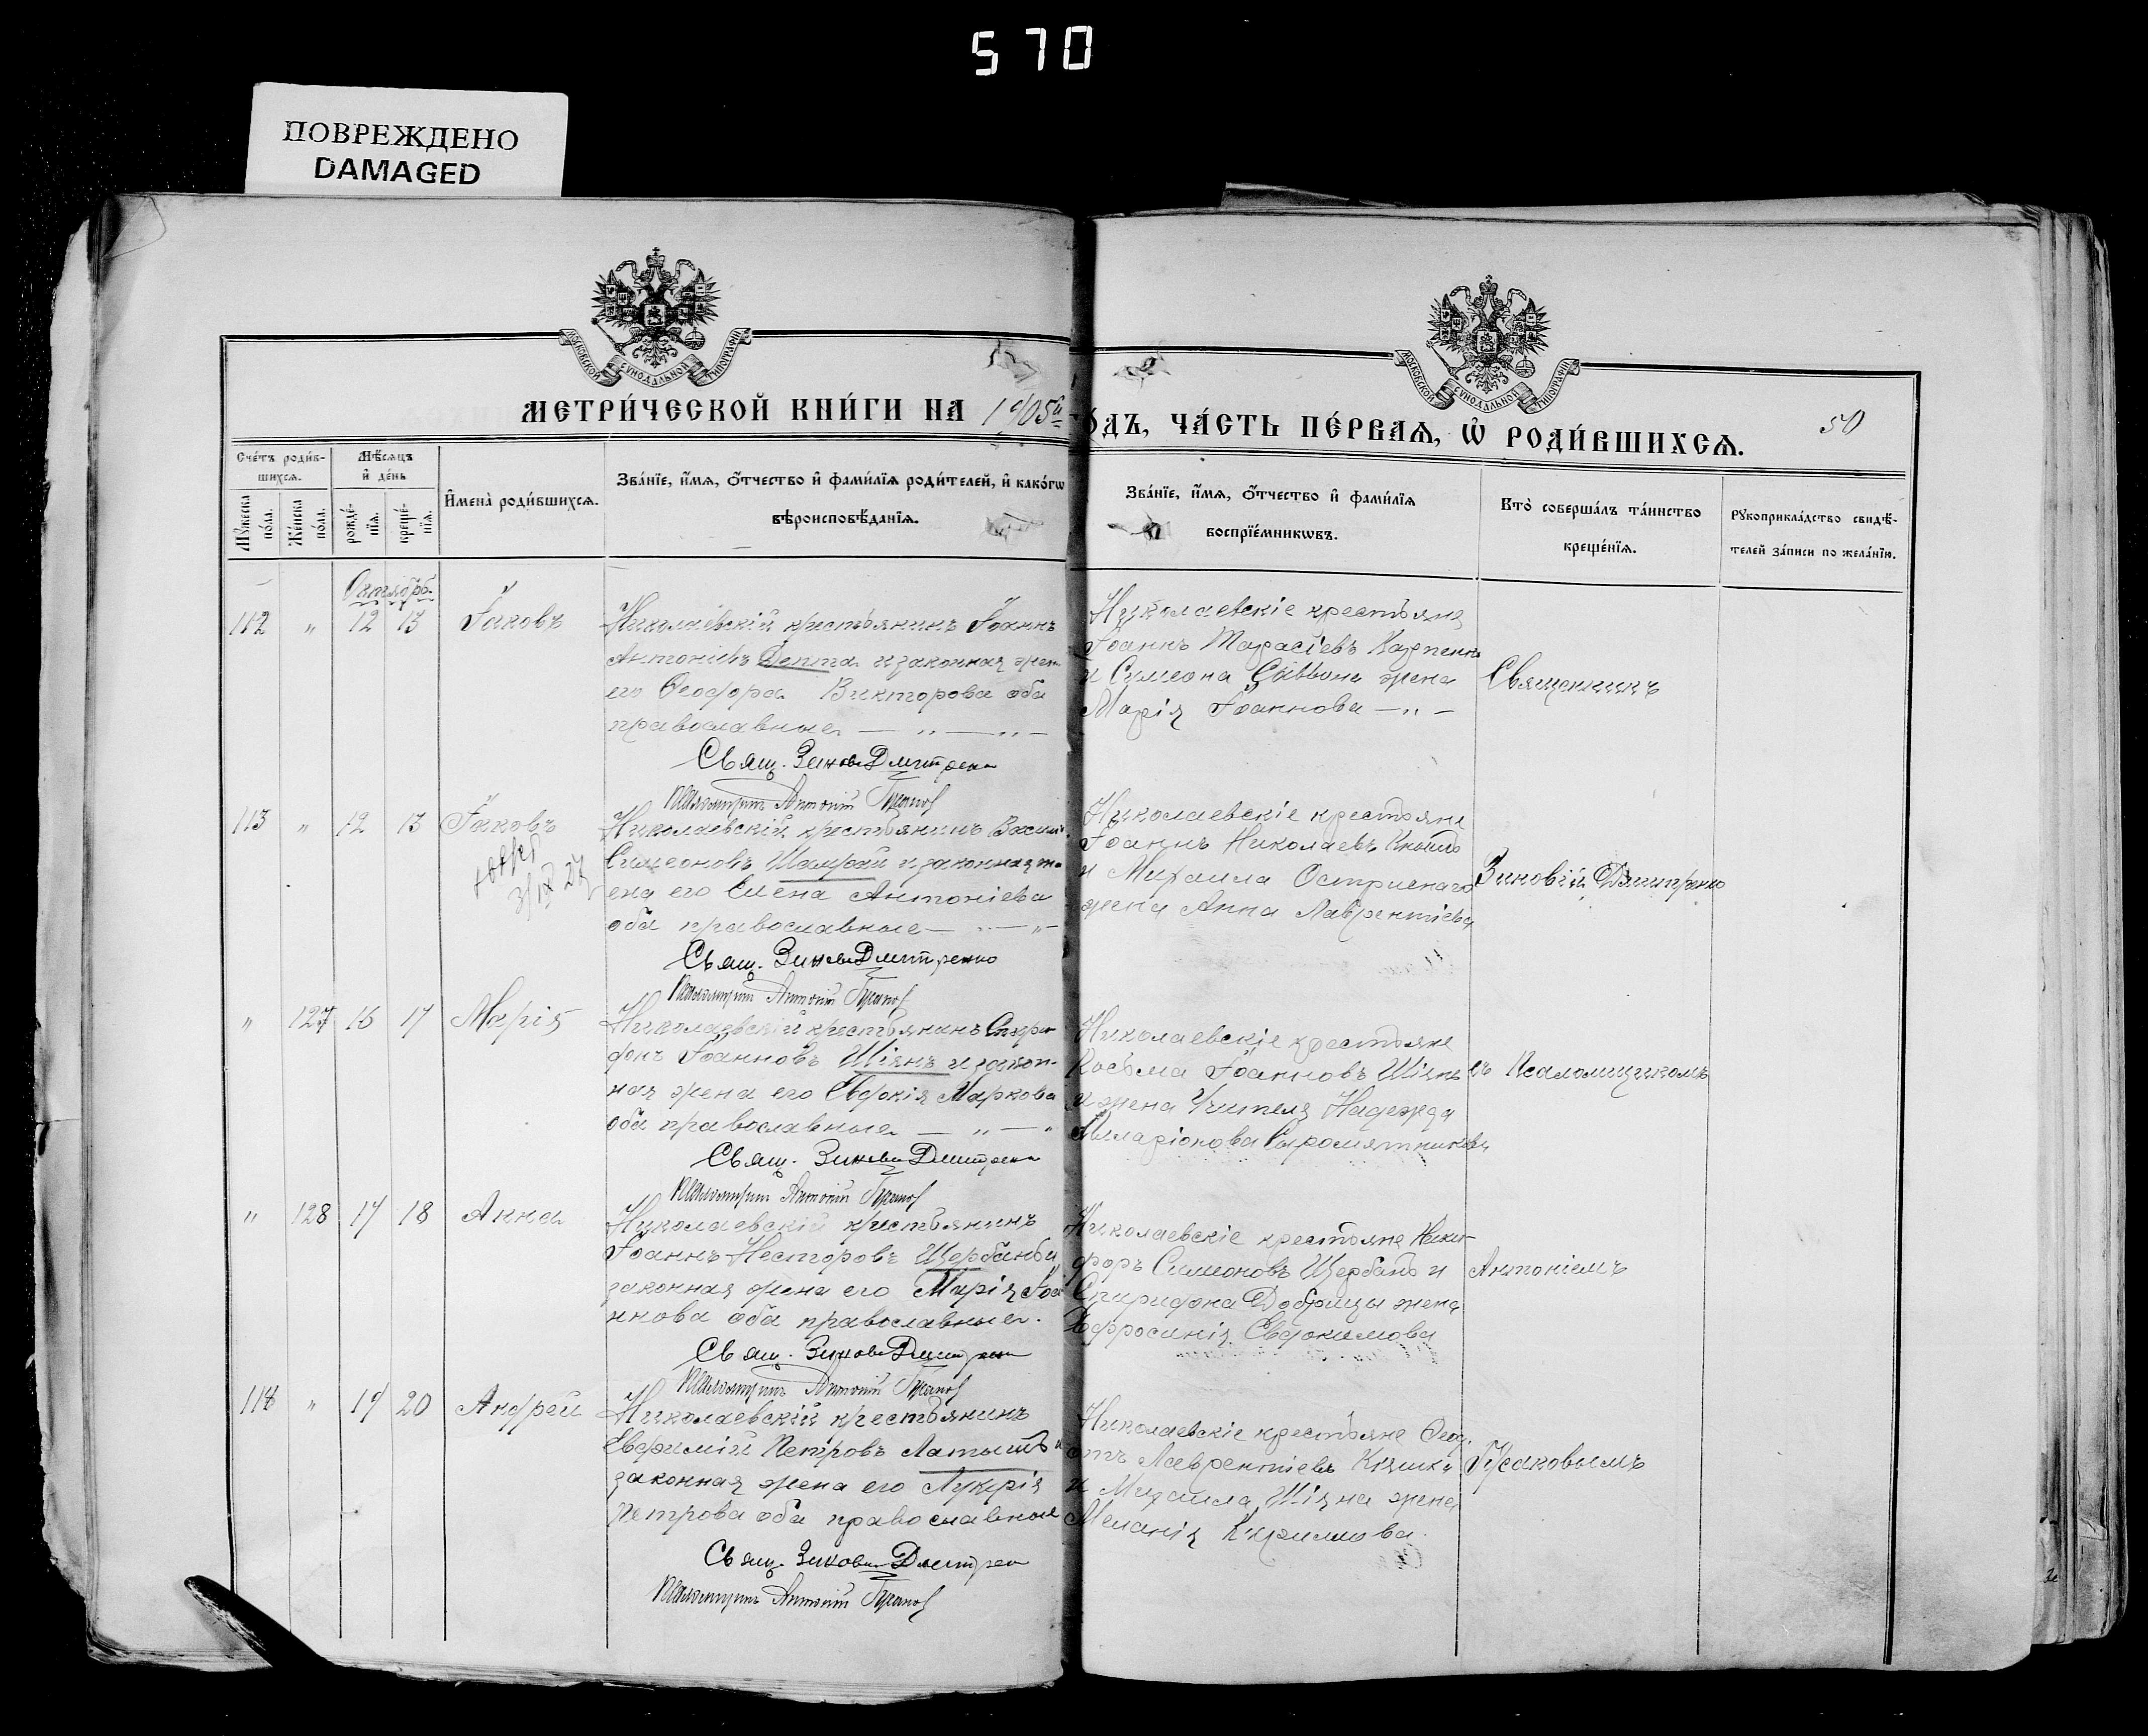 570
ПОВРЕЖДЕНО
DAMAGED
МОСКОВСКОЙ СѴНОДАЛЬНОЙ ТИПОГРАФІИ
МОСКОВСКОЙ СѴНОДАЛЬНОЙ ТИПОГРАФІИ
МЕТРИ́ЧЕСКОЙ КНИ́ГИ НА 1905й
ОДЪ, ЧА́СТЬ ПЕ́РВАѦ, Ѡ РОДИ́ВШИХСѦ.
50
Сче́тъ роди́в-
шихсѧ.
Мѣ́сѧцъ
и҆ де́нь
Мꙋ́жеска по́ла.
Же́нска по́ла.
рожде́-нїѧ.
креще́-нїѧ.
И҆мена̀ роди́вшихсѧ.
Зва́нїе, и҆́мѧ, ѻ҆́тчество и҆ фами́лїѧ роди́телей, и҆ како́гѡ
вѣроисповѣ́данїѧ.
Зва́нїе, и҆́мѧ, ѻ҆́тчество и҆ фами́лїѧ
воспрїе́мникѡвъ.
Кто̀ соверша́лъ та́инство
креще́нїѧ.
Рꙋкоприкла́дство свидѣ́-
телей за́писи по жела́нїю.
Октябрь
112 " 12 13 Іаковъ
Николаевскій крестьянинъ Іоаннъ
Антоніевъ Депта и законная жен
его Феодора Викторова оба
православные
Свящ. Зиновій Дмитренко
Псаломщикъ Антоній
Николаевскіе крестьяне
Іоаннъ Тарасіевъ Карпенк
и Симеона Саввона жена
Марія Іоаннова
Священникъ
113 " 12 13 Іаковъ
Николаевскій крестьянинъ Васил
Симеоновъ Шамрай и законная ж
ена его Елена Антоніева
оба православные
Свящ. Зиновій Дмитренко
Псаломщикъ Антоній
Николаевскіе крестьяне
Іоаннъ Николаевъ
и Михаила Острянаго
жена Анна Лаврентіева
Зиновій Дмитренко
" 127 16 17 Марія
Николаевскій крестьянинъ Спири
донъ Іоанновъ Шіянъ и закон-
ная жена его Евдокія Маркова
оба православные
Свящ. Зиновій Дмитренко
Псаломщикъ Антоній
Николаевскіе крестьяне
Косьма Іоанновъ Шіянъ
и жена Учителя Надежда
Иларіонова Сыромятникова
съ Псаломщикомъ
" 128 17 18 Анна
Николаевскій крестьянинъ
Іоаннъ Несторовъ Щербань и
законная жена его Марія Іоа
ннова оба православные.
Свящ. Зиновій Дмитренко
Псаломщикъ Антоній
Николаевскіе крестьяне Ники-
форъ Симеоновъ Щербань и
Спиридона Добрицы жена
Ефросинія Евдокимова
Антоніемъ
114 " 19 20 Андрей
Николаевскій крестьянинъ
Евфимій Петровъ Латышъ и
законная жена его Лукерія
Петрова оба православные
Свящ. Зиновій Дмитренко
Псаломщикъ Антоній
Николаевскіе крестьяне Фео
тъ Лаврентіевъ
и Михаила Шіяна жена
Меланія Кириллова